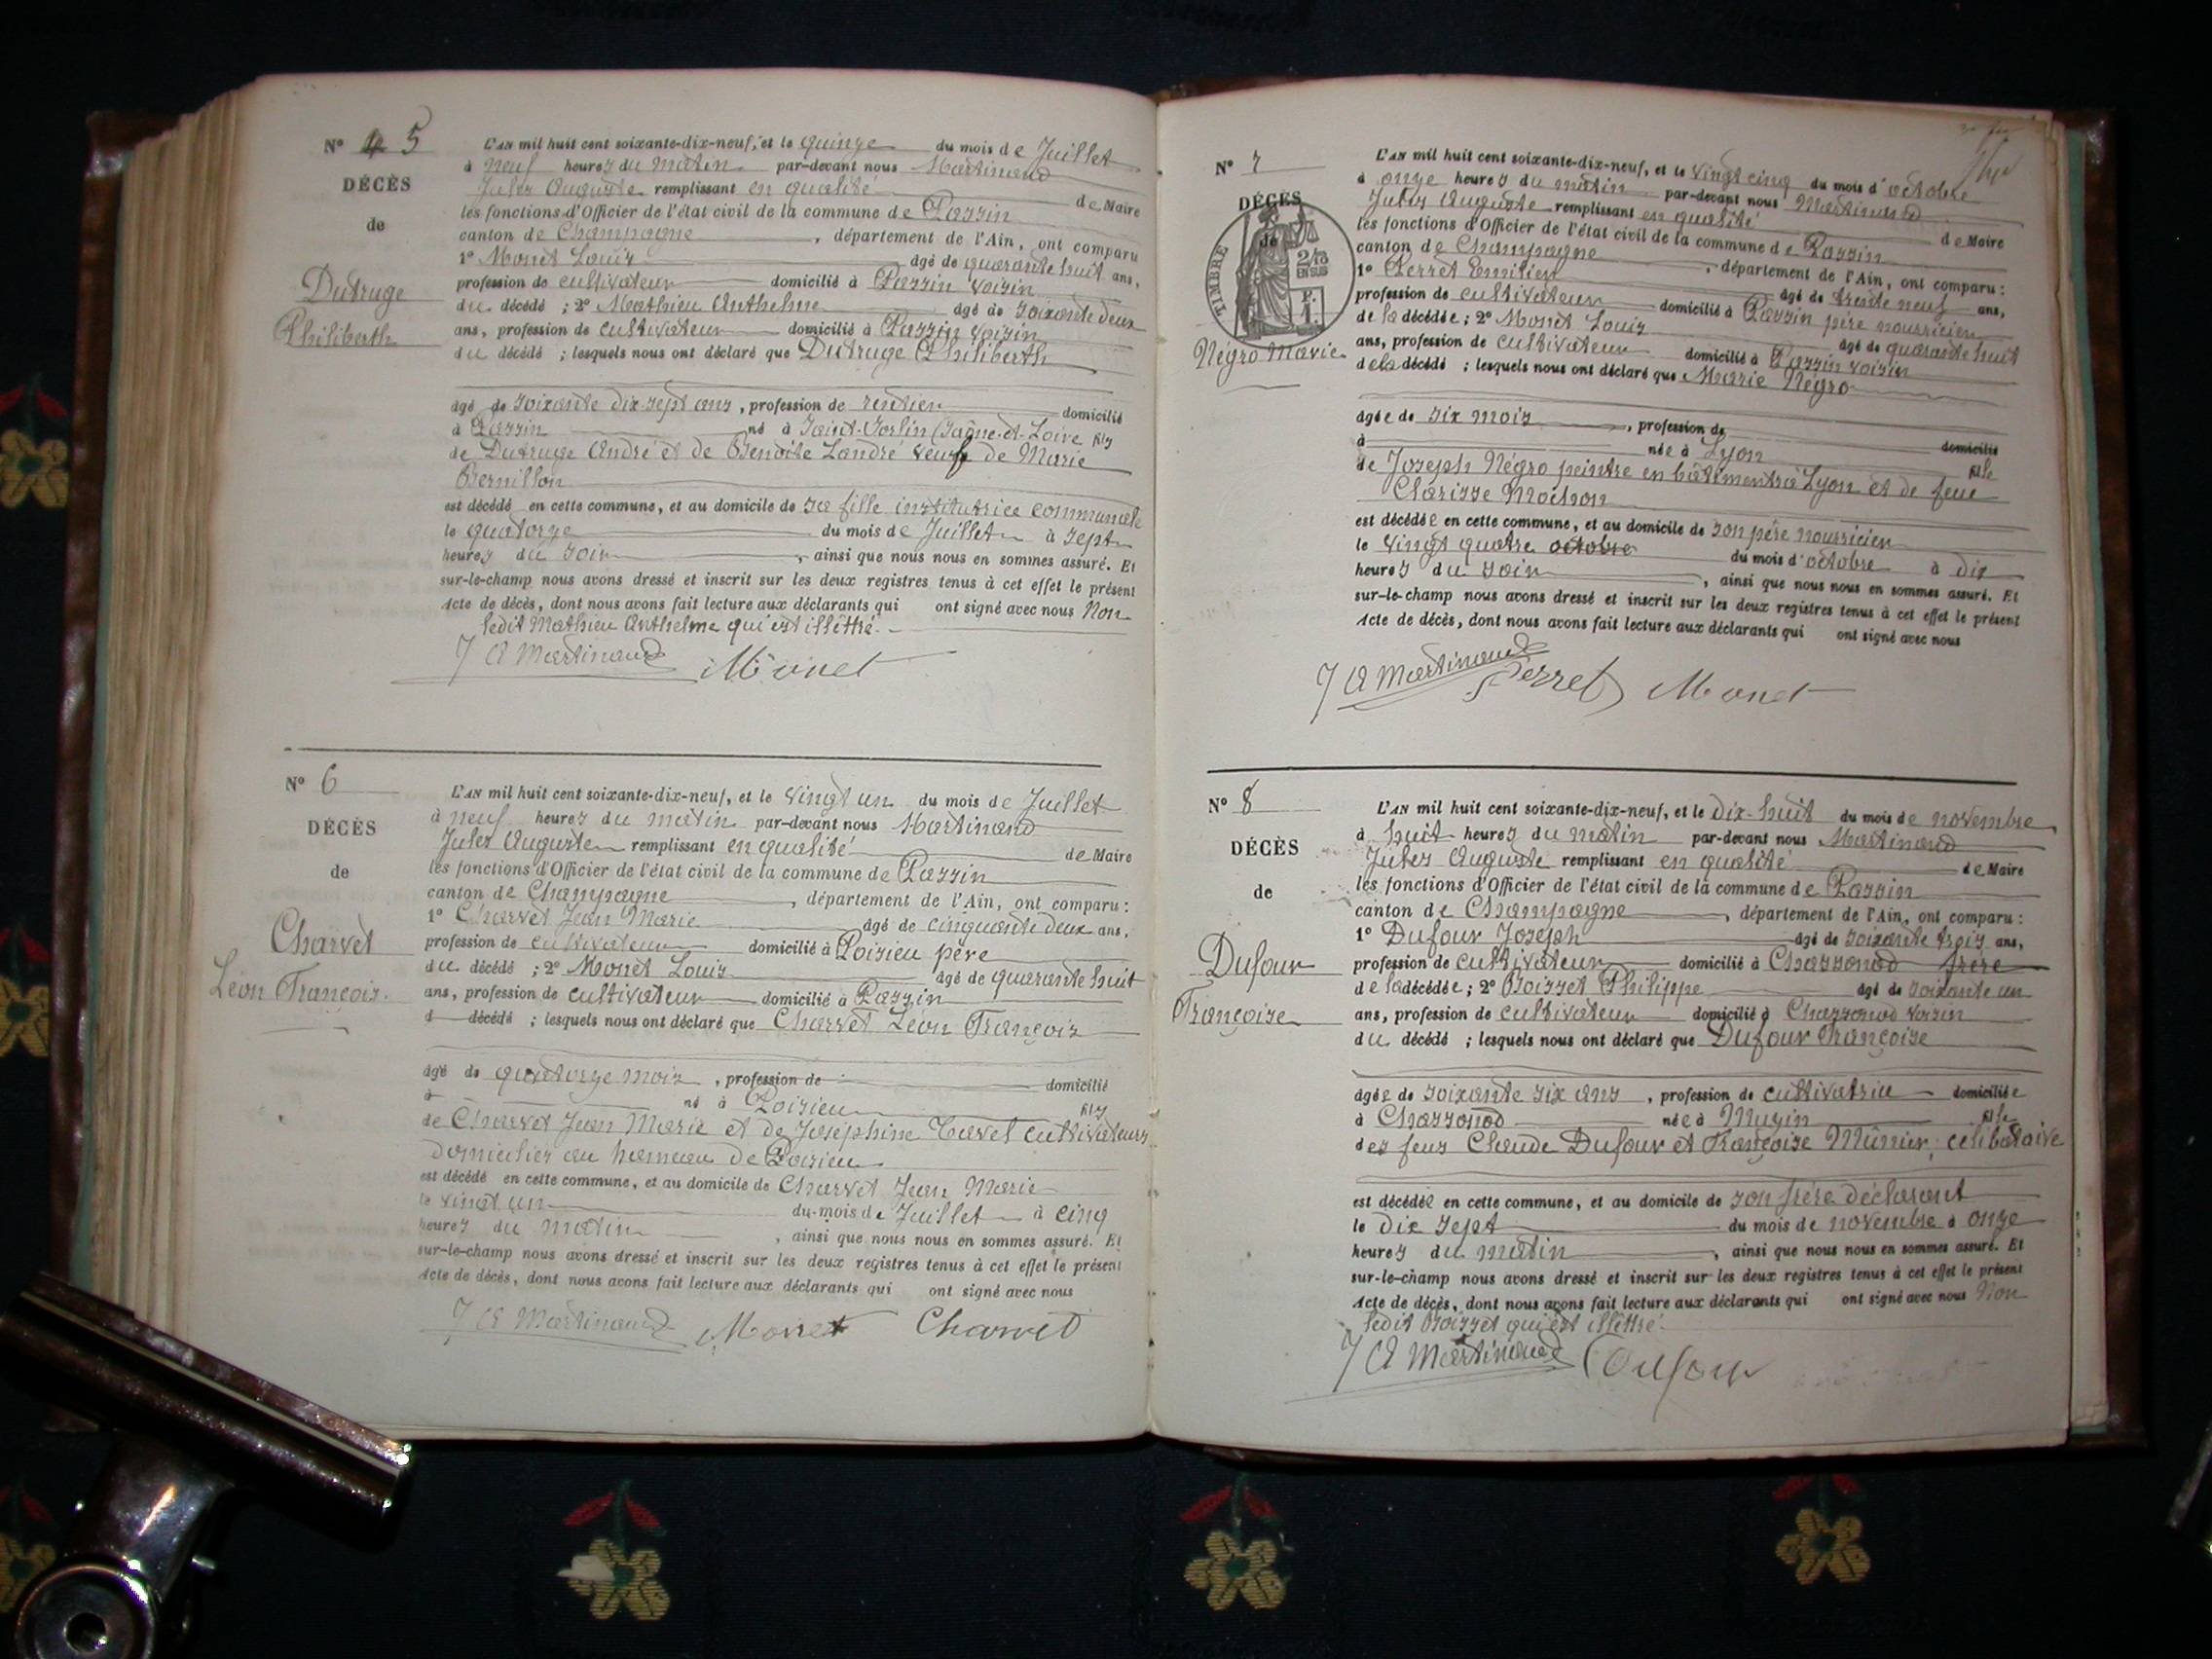 N° 5
DÉCÈS
de
Dutruge
Philiberth
L'AN mil huit cent soixante-dix-neuf, et le quinze du mois de Juillet
à neuf heures du matin par-devant nous Martinand
Jules Auguste remplissant en qualité de Maire
les fonctions d'Officier de l'état civil de la commune de Passin
canton de Champagne, département de l'Ain, ont comparu
1° Monet Louis âgé de quarante huit ans,
profession de cultivateur domicilié à Passin voisin
du décédé ; 2° Mathieu Anthelme âgé de soixante deux
ans, profession de cultivateur domicilié à Passin voisin
du décédé ; lesquels nous ont déclaré que Dutruge Philiberth
âgé de soixante dix sept ans, profession de rentier domicilié
à Passin né à Saint-Sorlin (Saône-et-Loire fils
de Dutruge André et de Benoite Landré veuf de Marie
Bernillon
est décédé en cette commune, et au domicile de sa fille institutrice communale
le quatorze du mois de Juillet à sept
heures du soir, ainsi que nous nous en sommes assuré. Et
sur-le-champ nous avons dressé et inscrit sur les deux registres tenus à cet effet le présent
Acte de décès, dont nous avons fait lecture aux déclarants qui ont signé avec nous Non
ledit Mathieu Anthelme qui est illétré.
J A Martinand Monet
N° 6
DÉCÈS
de
Charvet
Léon François.
L'AN mil huit cent soixante-dix-neuf, et le vingt un du mois de Juillet
à neuf heures du matin par-devant nous Martinand
Jules Auguste remplissant en qualité de Maire
les fonctions d'Officier de l'état civil de la commune de Passin
canton de Champagne, département de l'Ain, ont comparu :
1° Charvet Jean Marie âgé de cinquante deux ans,
profession de cultivateur domicilié à Poisieu père
du décédé ; 2° Monet Louis âgé de quarante huit
ans, profession de cultivateur domicilié à Passin
d décédé ; lesquels nous ont déclaré que Charvet Léon François
âgé de quatorze mois, profession de domicilié
à né à Poisieu fils
de Charvet Jean Marie et de Joséphine Tavel cultivateurs
domiciliés au hameau de Poisieu
est décédé en cette commune, et au domicile de Charvet Jean Marie
le vingt un du mois de Juillet à cinq
heures du matin, ainsi que nous nous en sommes assuré. Et
sur-le-champ nous avons dressé et inscrit sur les deux registres tenus à cet effet le présent
Acte de décès, dont nous avons fait lecture aux déclarants qui ont signé avec nous
J A Martinand Monet Charvet
N° 7
DÉCÈS
de
TIMBRE
2/10
EN SUS
Négro Marie
L'AN mil huit cent soixante-dix-neuf, et le vingt cinq du mois d'octobre
à onze heures du matin par-devant nous Martinand
Jules Auguste remplissant en qualité de Maire
les fonctions d'Officier de l'état civil de la commune de Passin
canton de Champagne, département de l'Ain, ont comparu :
1° Perret Emilien âgé de trente neuf ans,
profession de cultivateur domicilié à Passin père nourricien
de la décédée ; 2° Monet Louis âgé de quarante huit
ans, profession de cultivateur domicilié à Passin voisin
de la décédé ; lesquels nous ont déclaré que Marie Négro
âgée de six mois, profession de
à née à Lyon domicilié
de Joseph Négro peintre en bâtiments à Lyon et de feue fille
Clarisse Moison
est décédée en cette commune, et au domicile de son père nourricien
le vingt quatre octobre du mois d'octobre à dix
heures du soir, ainsi que nous nous en sommes assuré. Et
sur-le-champ nous avons dressé et inscrit sur les deux registres tenus à cet effet le présent
Acte de décès, dont nous avons fait lecture aux déclarants qui ont signé avec nous
J A Martinand Perret Monet
N° 8
DÉCÈS
de
Dufour
Françoise
L'AN mil huit cent soixante-dix-neuf, et le dix-huit du mois de novembre
à huit heures du matin par-devant nous Martinand
Jules Auguste remplissant en qualité de Maire
les fonctions d'Officier de l'état civil de la commune de Passin
canton de Champagne, département de l'Ain, ont comparu :
1° Dufour Joseph âgé de soixante trois ans,
profession de cultivateur domicilié à Chassonod frère
de la décédée ; 2° Boisset Philippe âgé de soixante un
ans, profession de cultivateur domicilié à Chassonod voisin
du décédé ; lesquels nous ont déclaré que Dufour Françoise
âgée de soixante six ans, profession de cultivatrice domiciliée
à Chassonod née à Muzin fille
des feus Claude Dufour et Françoise Münier, célibataire
est décédée en cette commune, et au domicile de son frère déclarant
le dix sept du mois de novembre à onze
heures du matin, ainsi que nous nous en sommes assuré. Et
sur-le-champ nous avons dressé et inscrit sur les deux registres tenus à cet effet le présent
Acte de décès, dont nous avons fait lecture aux déclarants qui ont signé avec nous Non
ledit Boisset qui est illétré.
J A Martinand Dufour